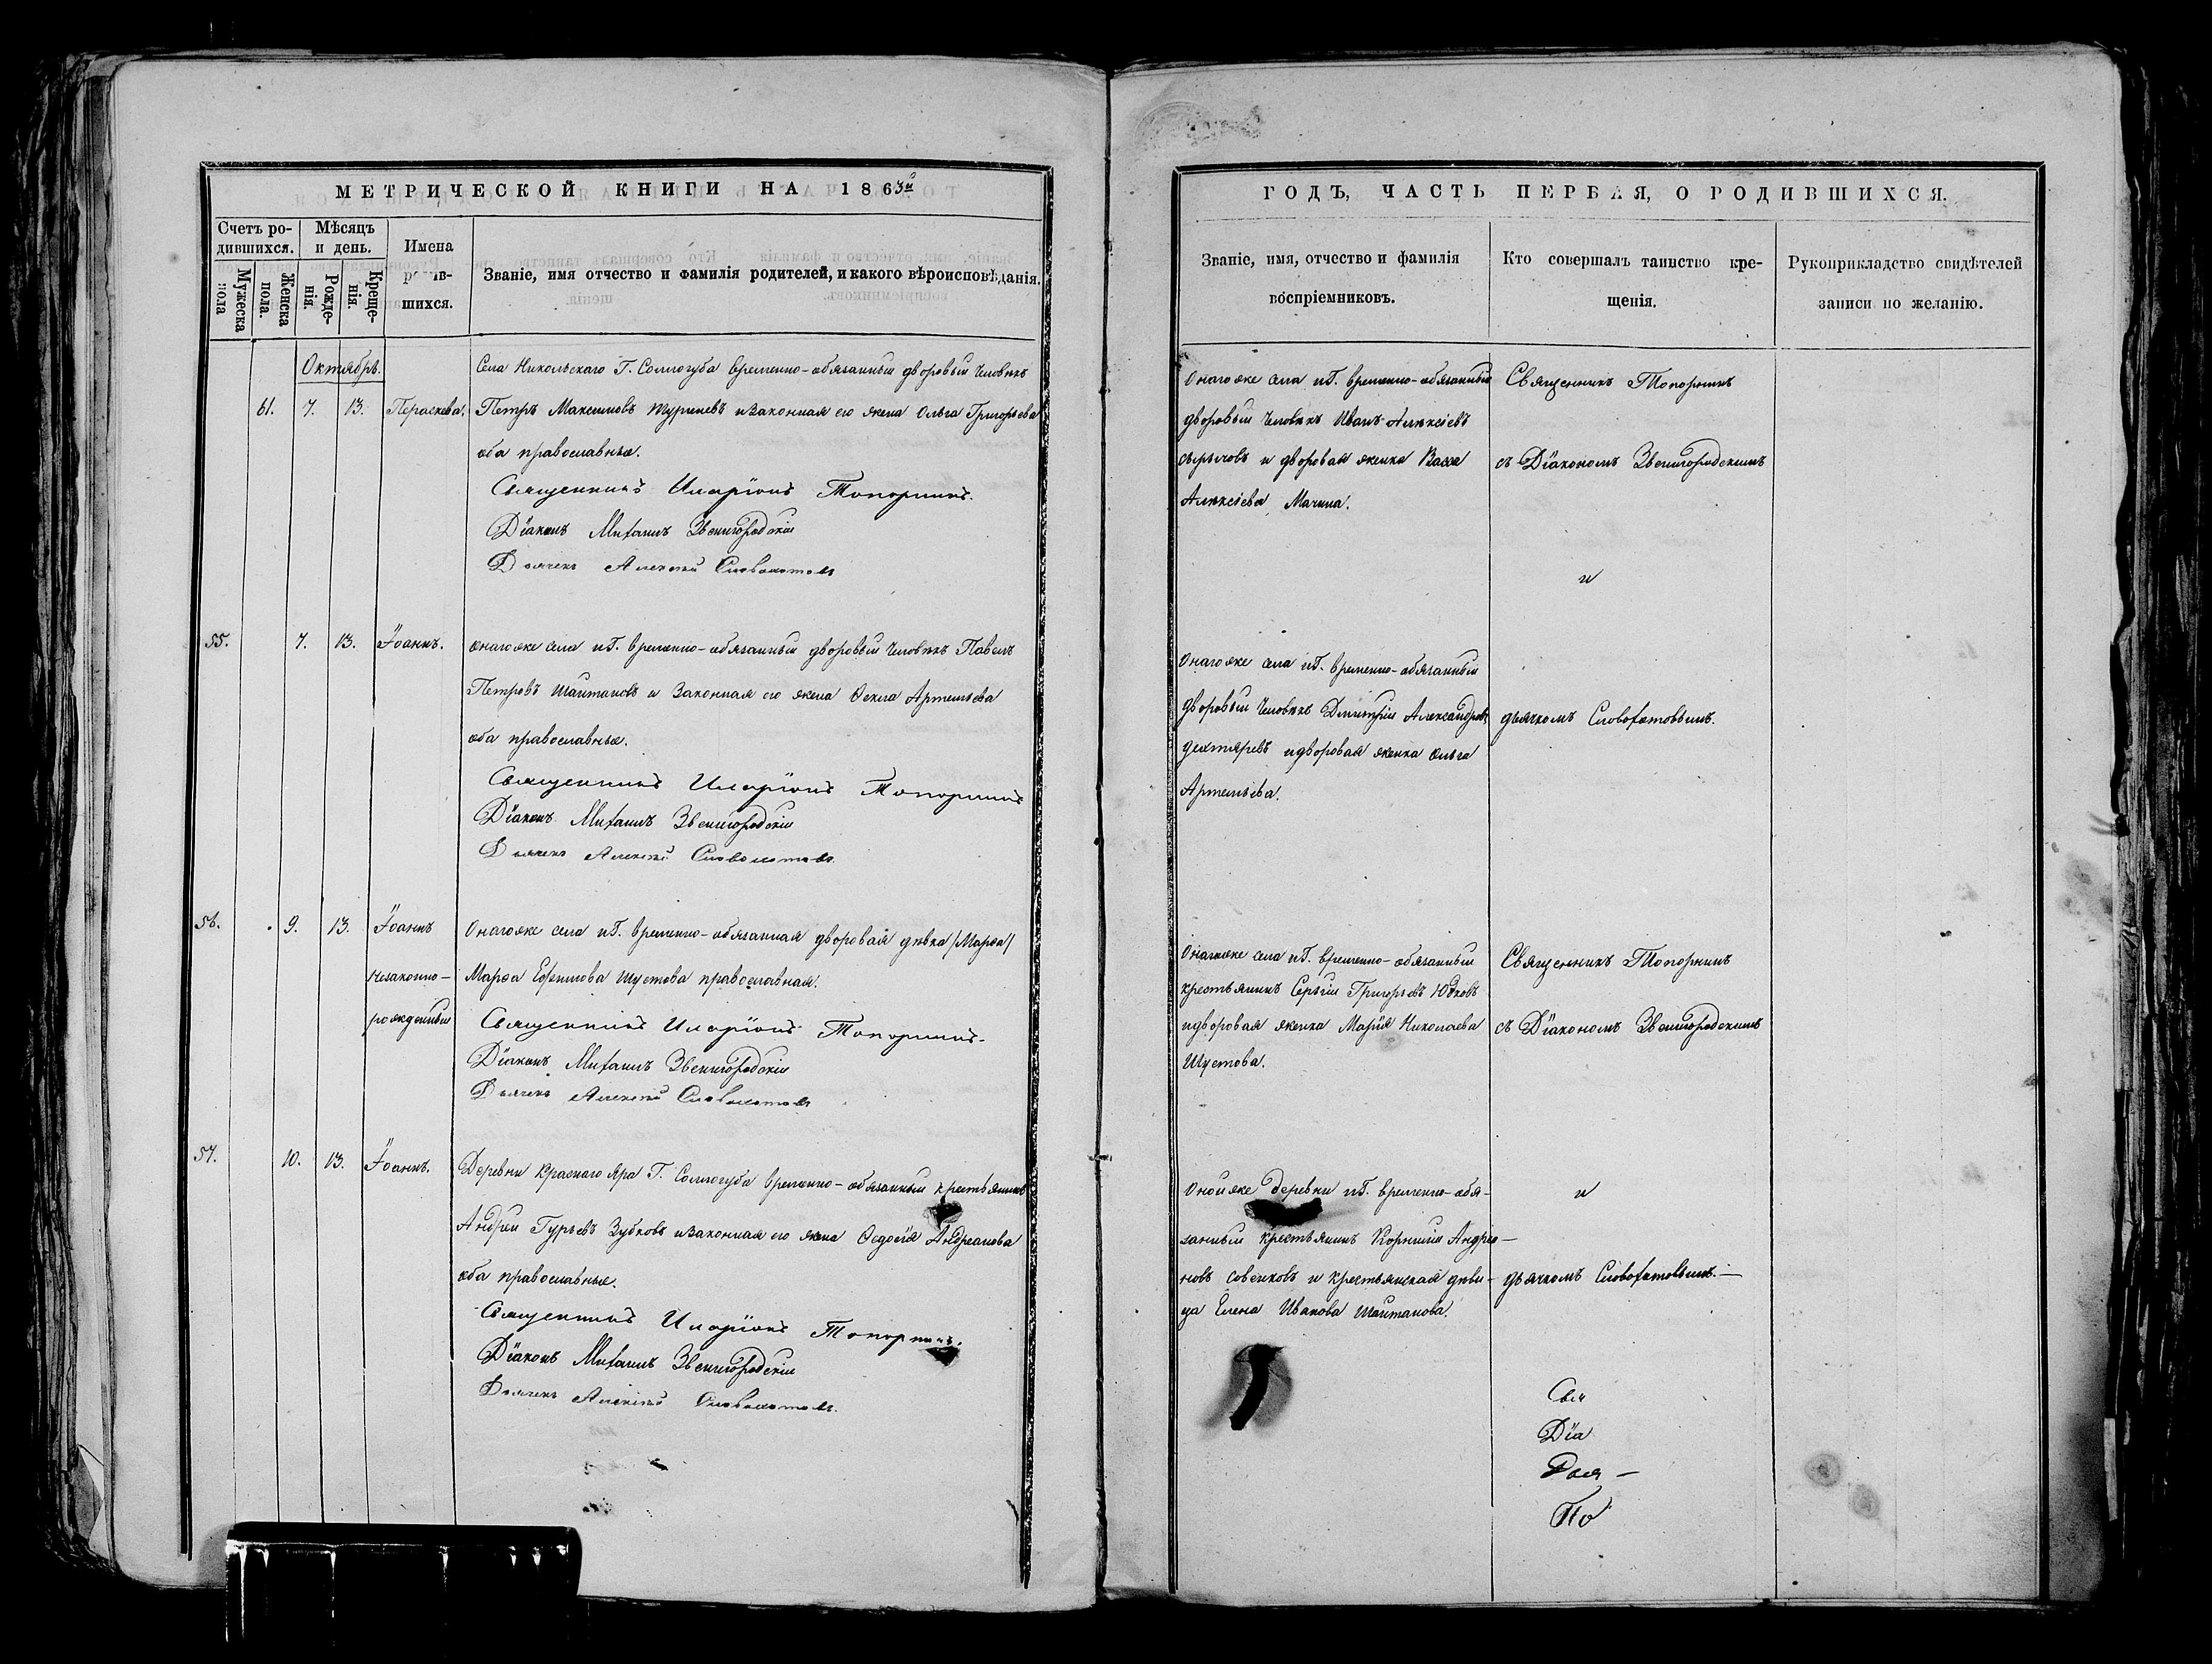 МЕТРИЧЕСКОЙ КНИГИ НА 1863й
Счетъ родившихся.
Мужеска пола
Женска пола.
Мѣсяцъ и день.
Рожденія.
Крещенія.
Имена
шихся.
Званіе, имя отчество и фамилія родителей, и какого вѣроисповѣданія.
Октябрь.
Села Никольскаго Г. Соллогуба временно-обязанный дворовый человѣкъ
61. 7. 13. Параскева. Петръ Максимовъ и законная его жена Ольга Григорьева
оба православные.
Священникъ Иларіонъ Топорнинъ.
Діаконъ Михаилъ Звенигородскій
Дьячекъ Алексѣй Словохотовъ
55. 7. 13. Іоаннъ. онагоже села и Г. временно-обязанный дворовый человѣкъ Павелъ
Петровъ Шайтановъ и законная его жена Ѳекла Артемьева
оба православные.
Священникъ Иларіонъ Топорнинъ
Діаконъ Михаилъ Звенигородскій
Дьячекъ Алексѣй Словохотовъ
56. 9. 13. Іоаннъ Онагоже села и Г. временно-обязанная дворовая дѣвка /Марѳа/
незаконно-рожденный Марѳа Ефимова Шустова православная.
Священникъ Иларіонъ Топорнинъ.
Діаконъ Михаилъ Звенигородскій
Дьячекъ Алексѣй Словохотовъ
57. 10. 13. Іоаннъ. Деревни Краснаго Яра Г. Соллогуба временно-обязанный крестьянинъ
Андрей Гурьевъ Зубковъ и законная его жена Ѳедосія Андреанова
оба православные.
Священникъ Иларіонъ Топорнинъ.
Діаконъ Михаилъ Звенигородскій
Дьячекъ Алексѣй Словохотовъ.
ГОДЪ, ЧАСТЬ ПЕРВАЯ, О РОДИВШИХСЯ.
Званіе, имя, отчество и фамилія
воспріемниковъ.
Кто совершалъ таинство крещенія.
Рукоприкладство свидѣтелей
записи по желанію.
Онагоже села и Г. временно-обязанный
дворовый человѣкъ Иванъ Алексіевъ
и дворовая женка Васса
Алексіева Мачина.
Священникъ Топорнинъ
съ Діакономъ Звенигородскимъ
и
Онагоже села и Г. временно-обязанный
дворовый человѣкъ Дмитрій Александровъ
Дехтяревъ и дворовая женка Ольга
Артемьева.
дьячкомъ Словохотовымъ.
Онагоже села и Г. временно-обязанный
крестьянинъ Сергій Григорьевъ Юдковъ
и дворовая женка Марія Николаева
Шустова.
Священникъ Топорнинъ
съ Діакономъ Звенигородскимъ
Онойже деревни и Г. временно-обя-
занный крестьянинъ Корнилій Андреа-
новъ Совенковъ и крестьянская дѣви-
ца Елена Иванова Шайтанова.
и
дьячкомъ Словохотовымъ.
Свя
Діа
Дья-
По